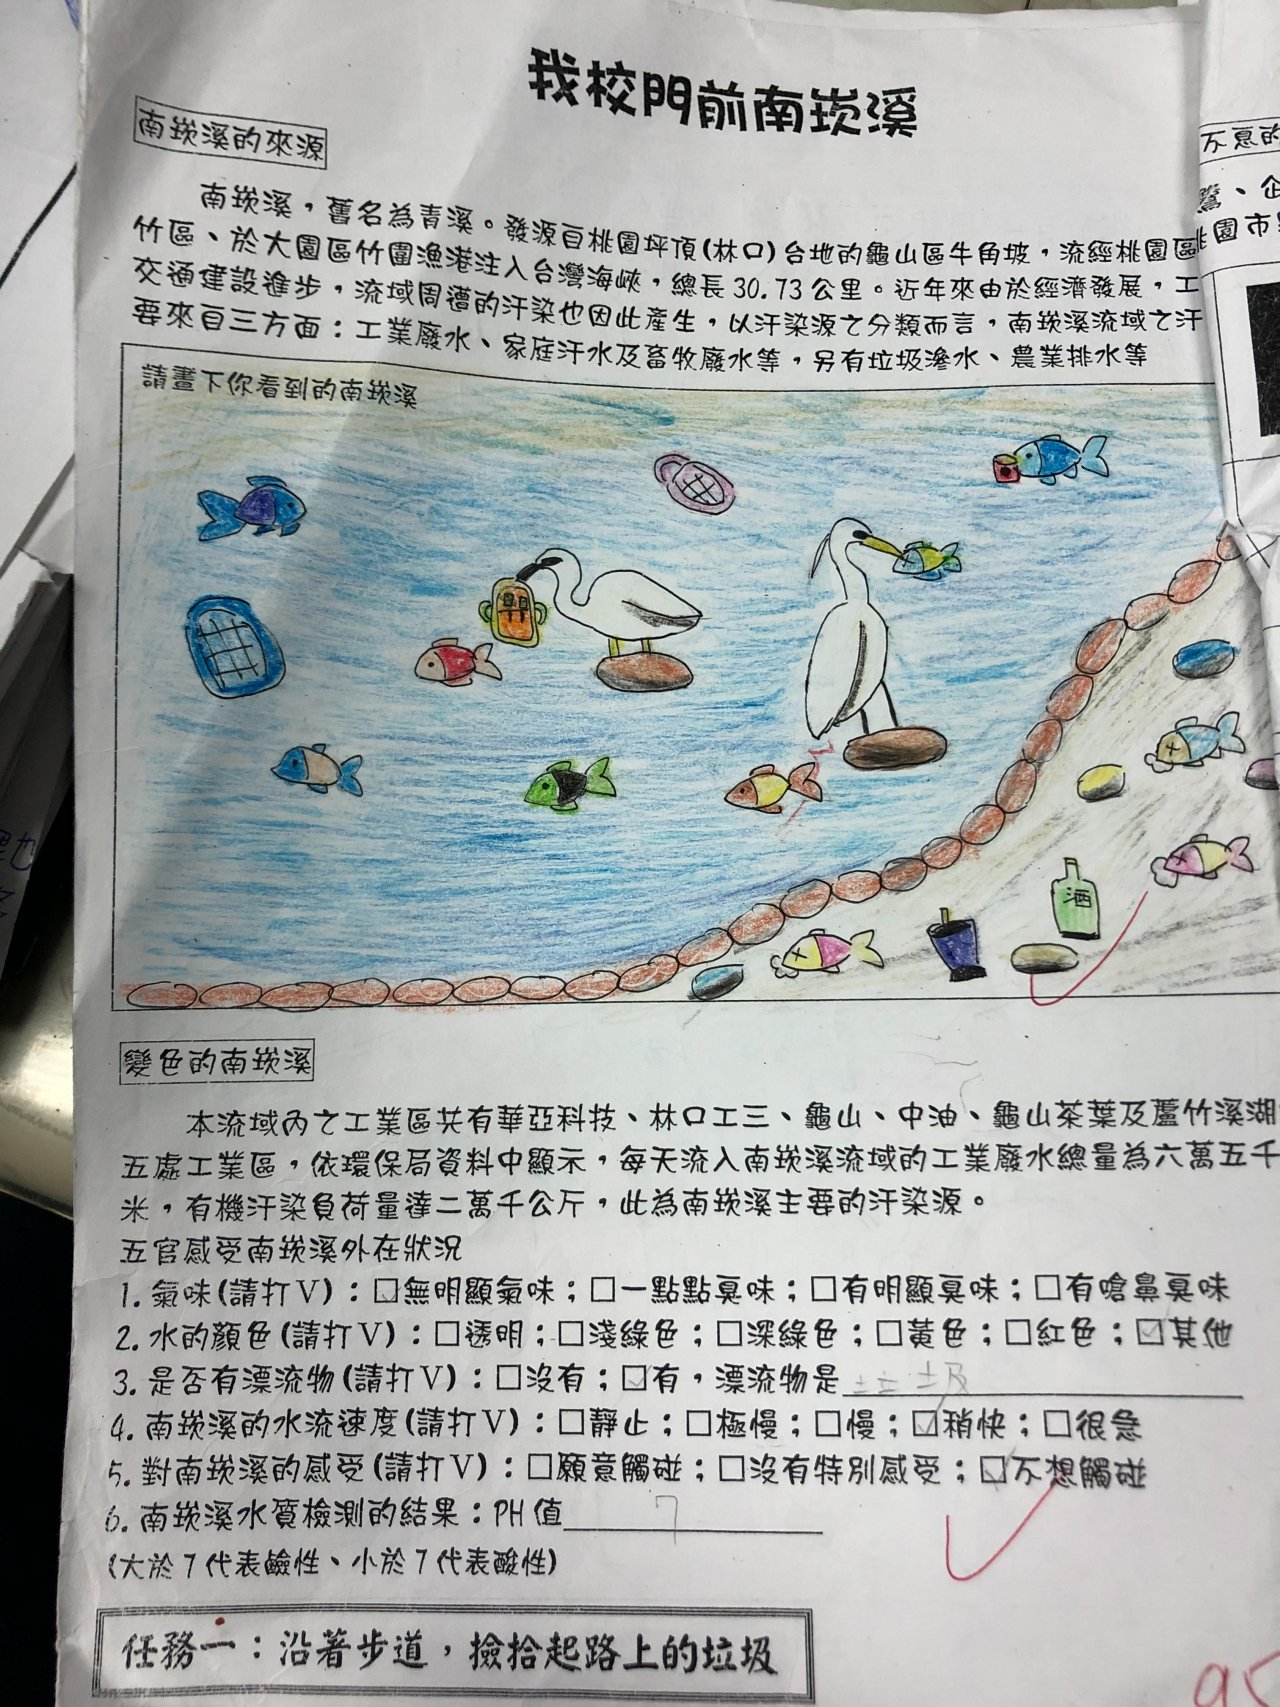 我校門前南崁溪
南崁溪的來源
南崁溪，舊名為青溪。發源自桃園坪頂(林口)台地的龜山區牛角坡，流經桃園區
竹區、於大園區竹圍漁港注入台灣海峽，總長30.73公里。近年來由於經濟發展，工
交通建設進步，流域周遭的汙染也因此產生，以汙染源之分類而言，南崁溪流域之汙
要來自三方面：工業廢水、家庭汙水及畜牧廢水等，另有垃圾滲水、農業排水等
請畫下你看到的南崁溪
酒
變色的南崁溪
本流域內之工業區共有華亞科技、林口工三、龜山、中油、龜山茶葉及蘆竹溪湖
五處工業區，依環保局資料中顯示，每天流入南崁溪流域的工業廢水總量為六萬五千
米，有機汙染負荷量達二萬千公斤，此為南崁溪主要的汙染源。
五官感受南崁溪外在狀況
1. 氣味(請打V)：☑無明顯氣味；□一點點臭味；□有明顯臭味；□有嗆鼻臭味
2. 水的顏色(請打V)：□透明；□淺綠色；□深綠色；□黃色；□紅色；☑其他
3. 是否有漂流物(請打V)：□沒有；☑有，漂流物是垃圾
4. 南崁溪的水流速度(請打V)：□靜止；□極慢；□慢；☑稍快；□很急
5. 對南崁溪的感受(請打V)：□願意觸碰；□沒有特別感受；☑不想觸碰
6. 南崁溪水質檢測的結果：PH值 7
(大於7代表鹼性、小於7代表酸性)
任務一：沿著步道，撿拾起路上的垃圾
95